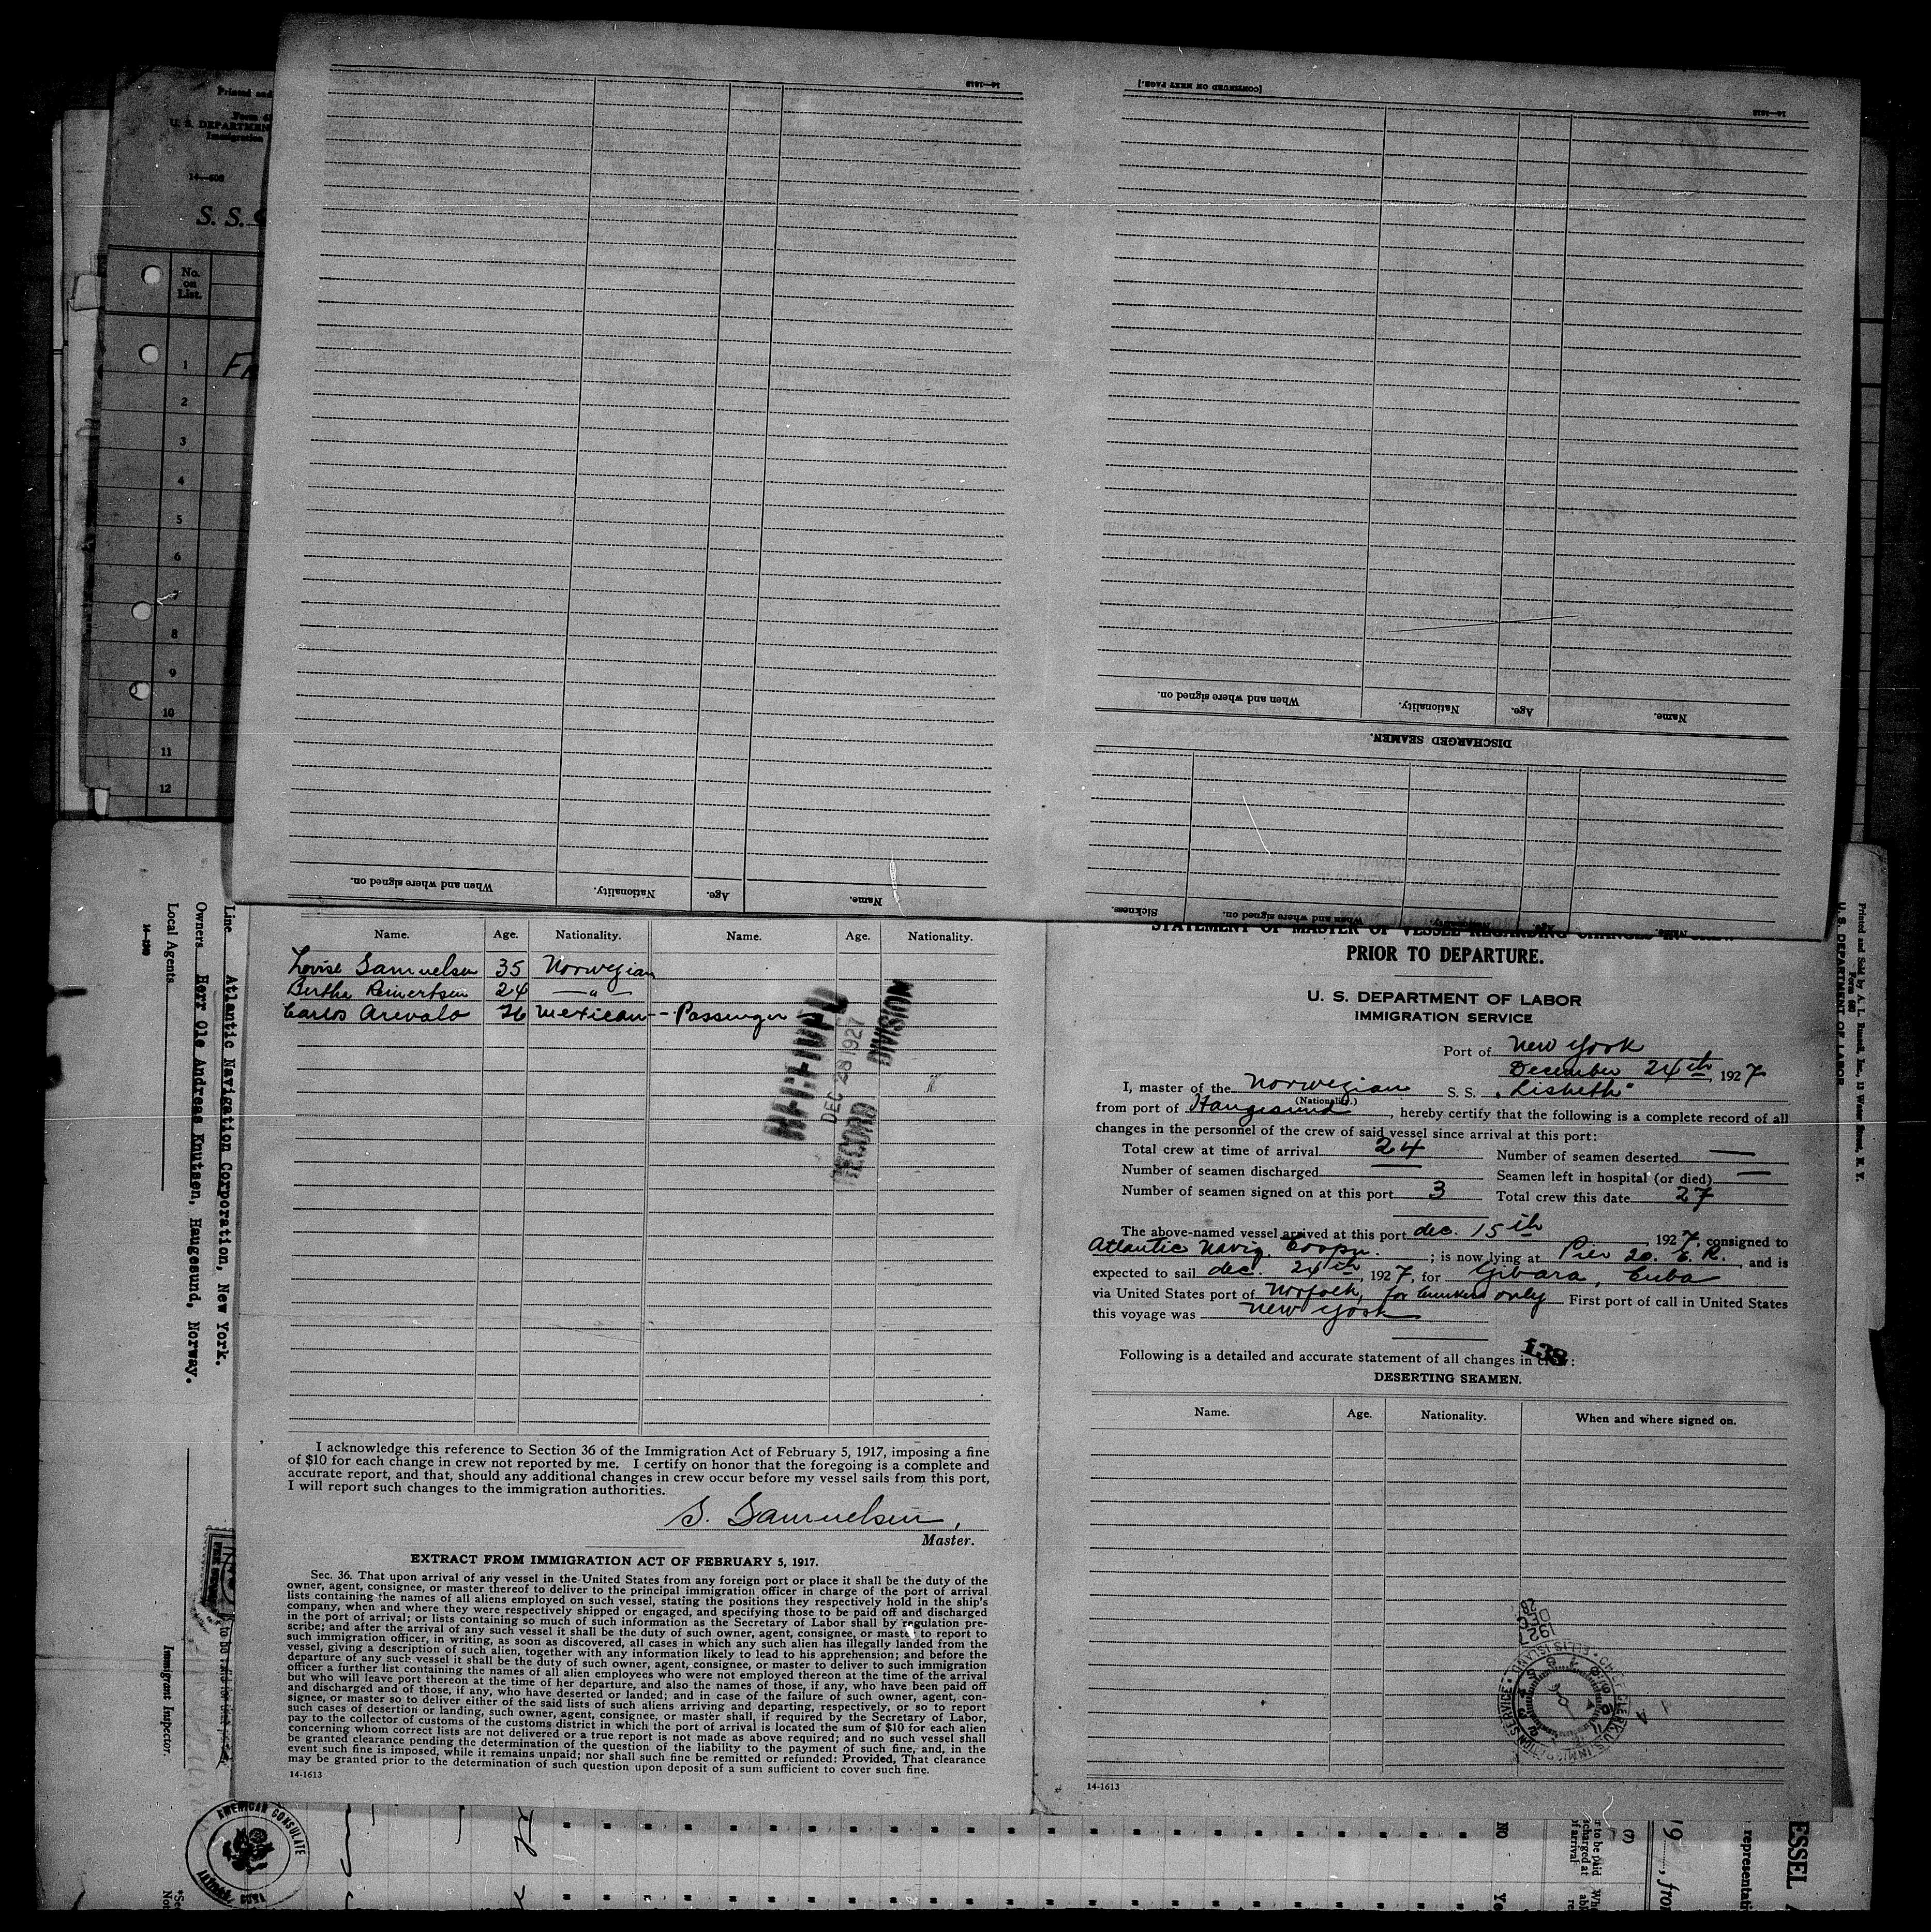 Printed and
U. S. DEPARTMEN
Immigration
S. S.
No.
on
List.
1
2
3
4
5
6
7
8
9
10
11
12
14—1613
[CONTINUED ON NEXT PAGE.]
When and where signed on.
Nationality.
Age.
Name.
When and where signed on.
Nationality.
Age.
Name.
DISCHARGED SEAMEN.
Sickness.
When and where signed on.
Line Atlantic Navigation Corporation, New York.
Owners Herr Ole Andreas Knutsen, Haugesund, Norway.
Local Agents
Immigrant Inspector.
Name. Age. Nationality. Name. Age. Nationality.
Lovise Samuelsen 35 Norwegian
Berthe Reinertsen 24 — " —
Carlos Arevalo 26 Mexican - - Passenger
DEC 28 1927
RECORD DIVISION
I acknowledge this reference to Section 36 of the Immigration Act of February 5, 1917, imposing a fine
of $10 for each change in crew not reported by me. I certify on honor that the foregoing is a complete and
accurate report, and that, should any additional changes in crew occur before my vessel sails from this port,
I will report such changes to the immigration authorities.
S. Samuelsen,
Master.
EXTRACT FROM IMMIGRATION ACT OF FEBRUARY 5, 1917.
Sec. 36. That upon arrival of any vessel in the United States from any foreign port or place it shall be the duty of the
owner, agent, consignee, or master thereof to deliver to the principal immigration officer in charge of the port of arrival
lists containing the names of all aliens employed on such vessel, stating the positions they respectively hold in the ship's
company, when and where they were respectively shipped or engaged, and specifying those to be paid off and discharged
in the port of arrival; or lists containing so much of such information as the Secretary of Labor shall by regulation pre-
scribe; and after the arrival of any such vessel it shall be the duty of such owner, agent, consignee, or master to report to
such immigration officer, in writing, as soon as discovered, all cases in which any such alien has illegally landed from the
vessel, giving a description of such alien, together with any information likely to lead to his apprehension; and before the
departure of any such vessel it shall be the duty of such owner, agent, consignee, or master to deliver to such immigration
officer a further list containing the names of all alien employees who were not employed thereon at the time of the arrival
but who will leave port thereon at the time of her departure, and also the names of those, if any, who have been paid off
and discharged and of those, if any, who have deserted or landed; and in case of the failure of such owner, agent, con-
signee, or master so to deliver either of the said lists of such aliens arriving and departing, respectively, or so to report
such cases of desertion or landing, such owner, agent, consignee, or master shall, if required by the Secretary of Labor,
pay to the collector of customs of the customs district in which the port of arrival is located the sum of $10 for each alien
concerning whom correct lists are not delivered or a true report is not made as above required; and no such vessel shall
be granted clearance pending the determination of the question of the liability to the payment of such fine, and, in the
event such fine is imposed, while it remains unpaid; nor shall such fine be remitted or refunded: Provided, That clearance
may be granted prior to the determination of such question upon deposit of a sum sufficient to cover such fine.
14-1613
STATEMENT OF MASTER OF VESSEL REGARDING CHANGES IN CREW
PRIOR TO DEPARTURE.
U. S. DEPARTMENT OF LABOR
IMMIGRATION SERVICE
Port of New York
December 24th, 1927
I, master of the Norwegian S. S. "Lisbeth"
(Nationality.)
from port of Haugesund, hereby certify that the following is a complete record of all
changes in the personnel of the crew of said vessel since arrival at this port:
Total crew at time of arrival 24 Number of seamen deserted —
Number of seamen discharged — Seamen left in hospital (or died) —
Number of seamen signed on at this port 3 Total crew this date 27
The above-named vessel arrived at this port dec. 15th, 1927, consigned to
Atlantic Navig. Corpn.; is now lying at Pier 20. E. R., and is
expected to sail dec. 24th, 1927, for Gibara, Cuba
via United States port of Norfolk, for bunkers only First port of call in United States
this voyage was New York
138
Following is a detailed and accurate statement of all changes in crew:
DESERTING SEAMEN.
Name. Age. Nationality. When and where signed on.
CHIEF CLERK U.S. IMMIGRATION SERVICE • ELLIS ISLAND
14-1613
Printed and Sold by A. L. Russell, Inc., 13 Water Street, N. Y.
Form 680
U. S. DEPARTMENT OF LABOR
AMERICAN CONSULATE
NO
ESSEL
representati
19 , from